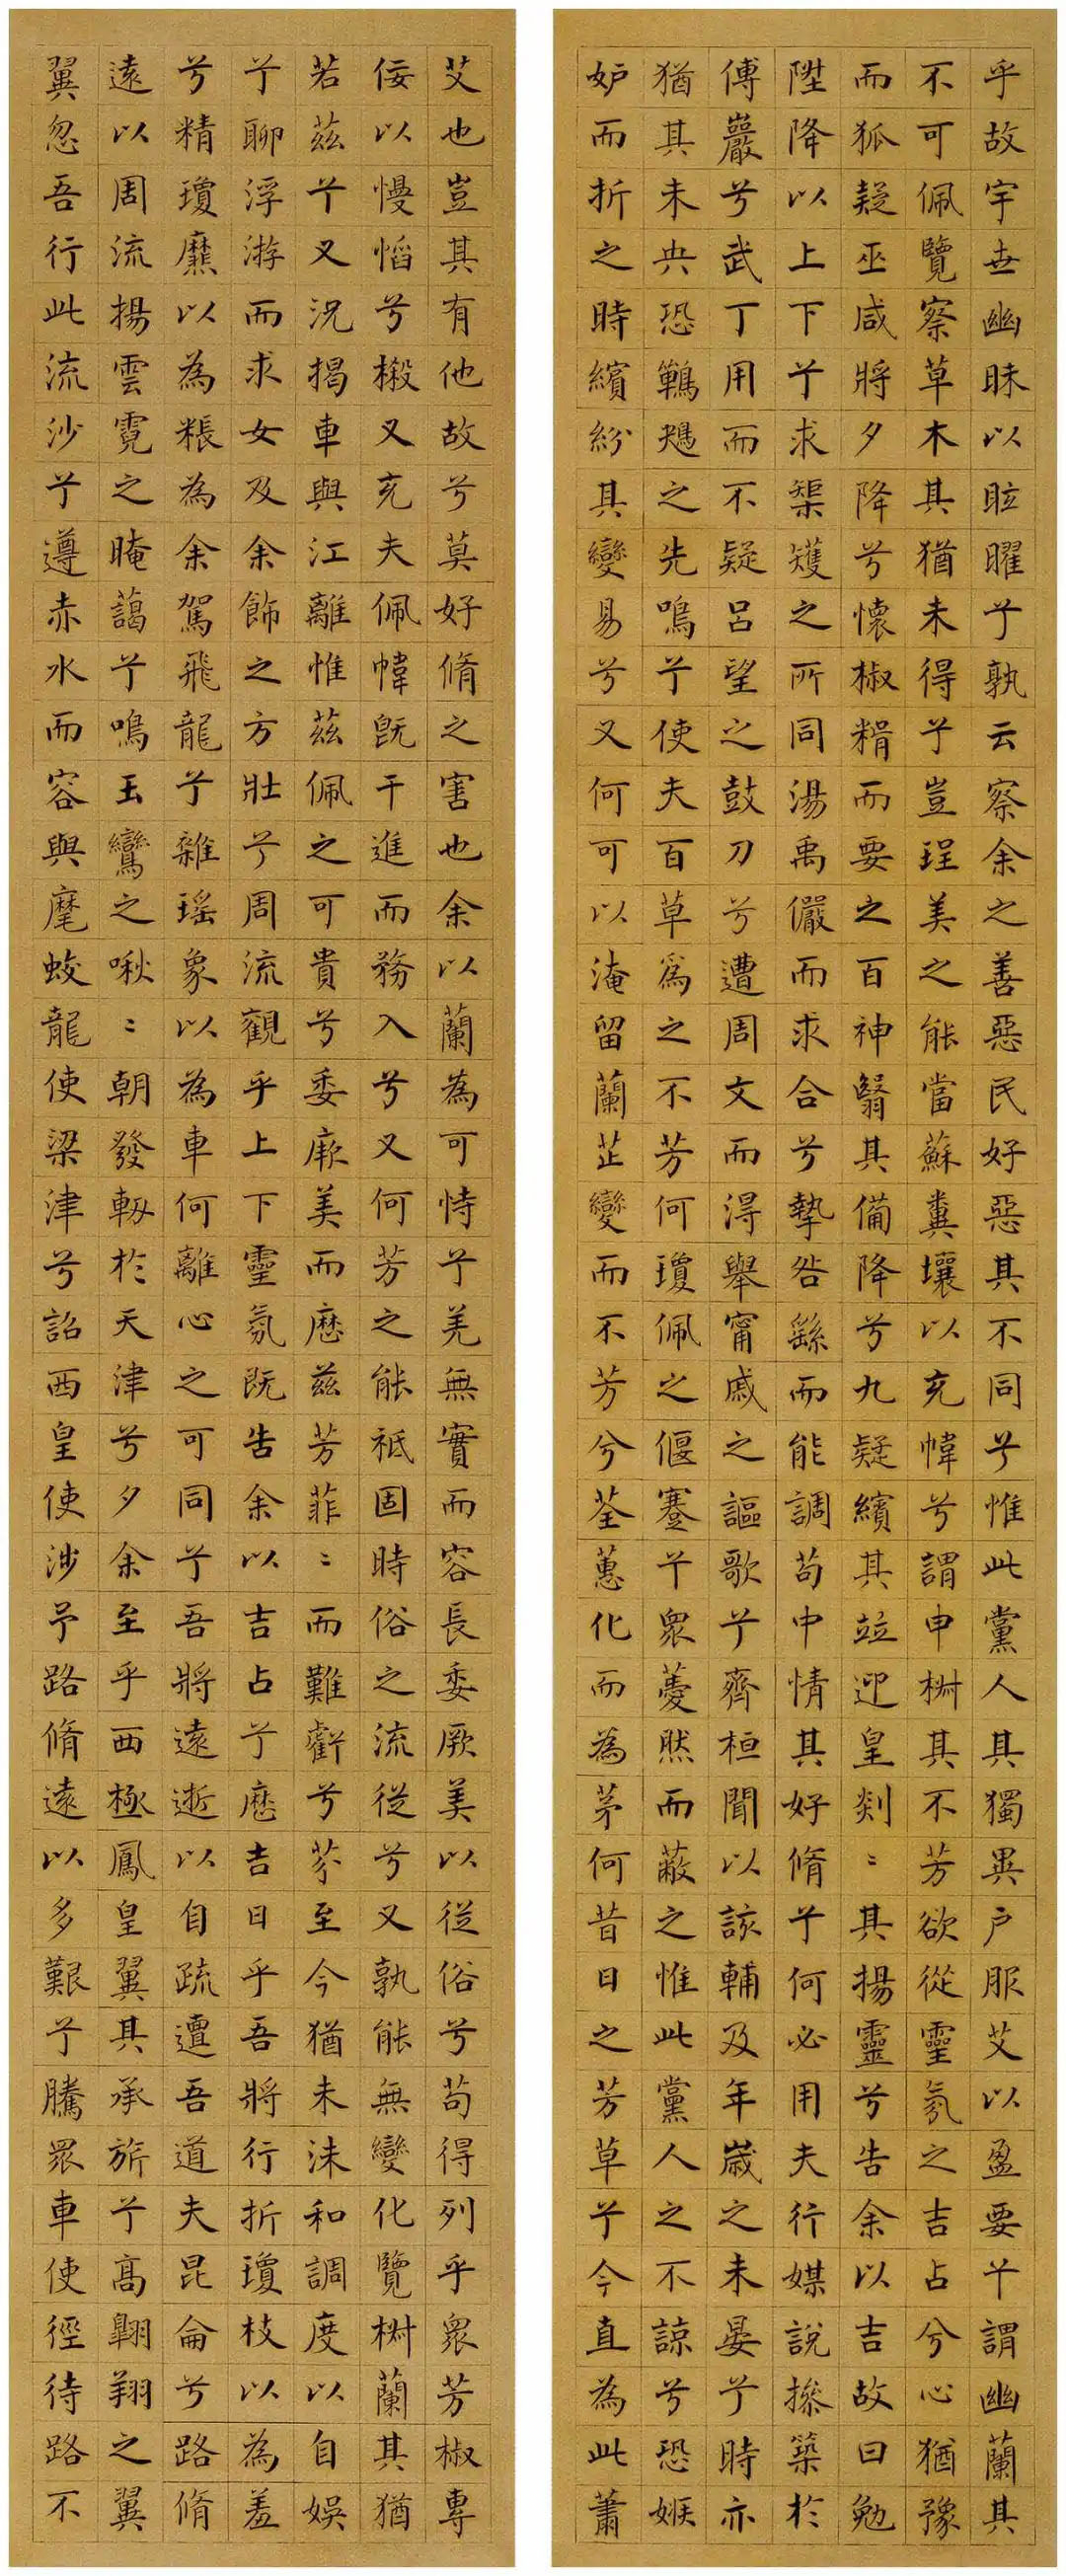 乎故宇世幽昧以眩曜兮孰云察余之善惡民好惡其不同兮惟此黨人其獨異戶服艾以盈要兮謂幽蘭其
不可佩覽察草木其猶未得兮豈珵美之能當蘇糞壤以充幃兮謂申椒其不芳欲從靈氛之吉占兮心猶豫
而狐疑巫咸將夕降兮懷椒糈而要之百神翳其備降兮九疑繽其竝迎皇剡〻其揚靈兮告余以吉故曰勉
陞降以上下兮求榘矱之所同湯禹儼而求合兮摯咎繇而能調苟中情其好脩兮何必用夫行媒說操築於
傅巖兮武丁用而不疑呂望之鼓刀兮遭周文而得舉甯戚之謳歌兮齊桓聞以該輔及年歲之未晏兮時亦
猶其未央恐鷤鴂之先鳴兮使夫百草為之不芳何瓊佩之偃蹇兮眾薆然而蔽之惟此黨人之不諒兮恐嫉
妒而折之時繽紛其變易兮又何可以淹留蘭芷變而不芳兮荃蕙化而為茅何昔日之芳草兮今直為此蕭
艾也豈其有他故兮莫好脩之害也余以蘭為可恃兮羌無實而容長委厥美以從俗兮苟得列乎眾芳椒專
佞以慢慆兮樧又充夫佩幃既干進而務入兮又何芳之能祗固時俗之流從兮又孰能無變化覽椒蘭其猶
若茲兮又況揭車與江離惟茲佩之可貴兮委厥美而歷茲芳菲〻而難虧兮芬至今猶未沬和調度以自娛
兮聊浮游而求女及余飾之方壯兮周流觀乎上下靈氛既告余以吉占兮歷吉日乎吾將行折瓊枝以為羞
兮精瓊爢以為粻為余駕飛龍兮雜瑤象以為車何離心之可同兮吾將遠逝以自疏邅吾道夫昆侖兮路脩
遠以周流揚雲霓之晻藹兮鳴玉鸞之啾〻朝發軔於天津兮夕余至乎西極鳳皇翼其承旂兮高翱翔之翼
翼忽吾行此流沙兮遵赤水而容與麾蛟龍使梁津兮詔西皇使涉予路脩遠以多艱兮騰眾車使徑待路不